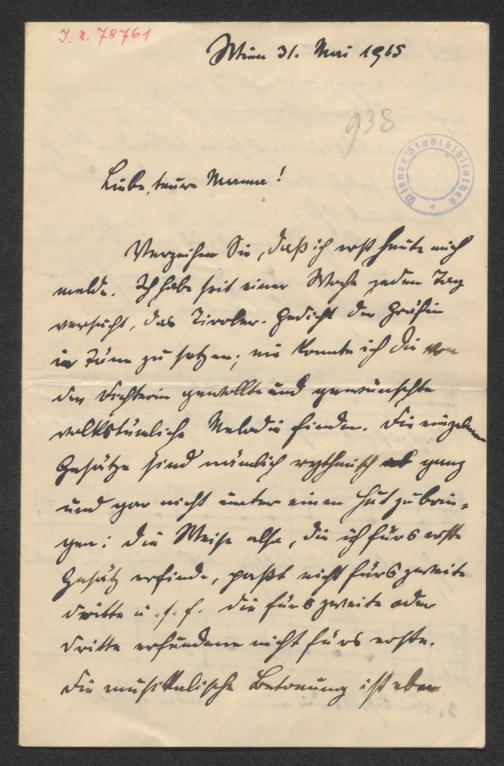 J. N. 78761
Wien 31. Mai 1915
938
Wiener Stadtbibliothek
Liebe, teure Mama!
Verzeihen Sie, daß ich erst heute mich
melde. Ich habe seit einer Woche jeden Tag
versucht, das Tiroler-Gedicht der Gräfin
in Töne zu setzen; nie konnte ich die von
der Dichterin gewollte und gewünschte
volkstümliche Melodie finden. Die einzelnen
Gesätze sind nämlich rythmisch ganz
und gar nicht unter einen Hut zu brin-
gen: die Weise also, die ich fürs erste
Gesätz erfinde, paßt nicht fürs zweite
dritte u. s. f. die fürs zweite oder
dritte erfundene nicht fürs erste.
Die musikalische Betonung ist eben